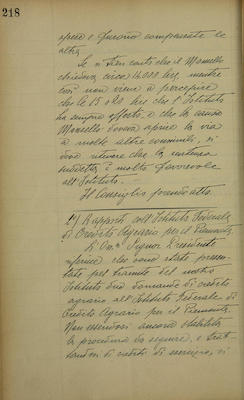 218
spese e furono compensate le
altre.
Se si tien conto che il Mamello
chiedeva circa 16.000 lire, mentre
così non viene a percepire
che le 15 che l'Istituto
ha sempre offerto, e che la causa
Mamello doveva aprire la via
a molte altre consimili, si
deve ritenere che la sentenza
suddetta è molto favorevole
all'Istituto.
Il Consiglio prende atto.
2) Rapporti coll'Istituto Federale
di Credito Agrario per il Piemonte
L'On. Signor Presidente
informa che sono state presen-
tate pel tramite del nostro
Istituto due domande di credito
agrario all'Istituto Federale di
Credito Agrario per il Piemonte.
Non essendosi ancora stabilita
la procedura da seguire, e trat-
tandosi di crediti di esercizio, si